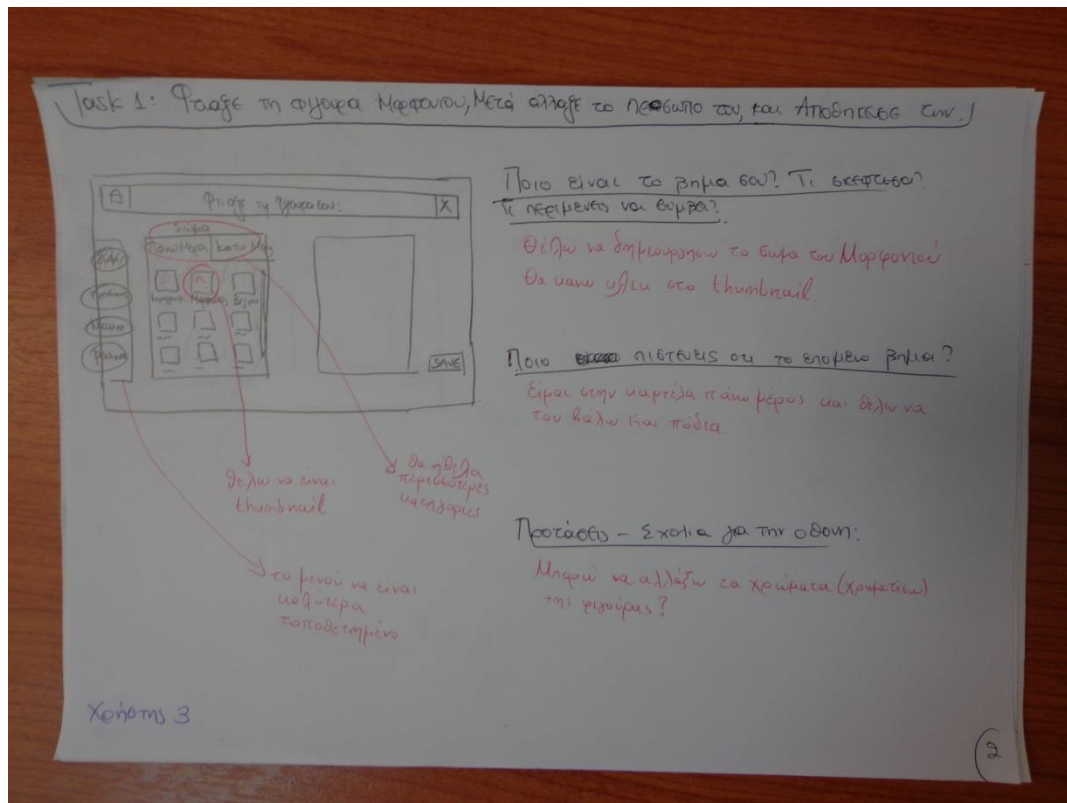 Task 1: Φτιαξε τη φιγουρα Μορφονιου, Μετά αλλαξε το προσωπο του, και Αποθηκευσε την.
Φτιαξε τη φιγουρα σου.
X
Σώμα
Πανω Μερος Κατω Μερ
Σώμα
SAVE
Θέλω να είναι
thumbnail
Θα ηθελα
περισσότερες
κατηγορίες
το μενού να είναι
καλύτερα
τοποθετημένο
Ποιο είναι το βημα σου? Τι σκεφτεσαι?
Τι περιμενεις να συμβει?
Θέλω να δημιουργησω το σωμα του Μορφονιού
Θα κανω κλικ στο thumbnail.
Ποιο πιστευεις οτι το επομενο βημα?
Είμαι στην καρτέλα πάνω μέρος και θέλω να
του βαλω και πόδια.
Προτάσεις - Σχολια για την οθονη:
Μπορώ να αλλάξω τα χρώματα (χρωματισω)
της φιγούρας?
Χρήστης 3
2